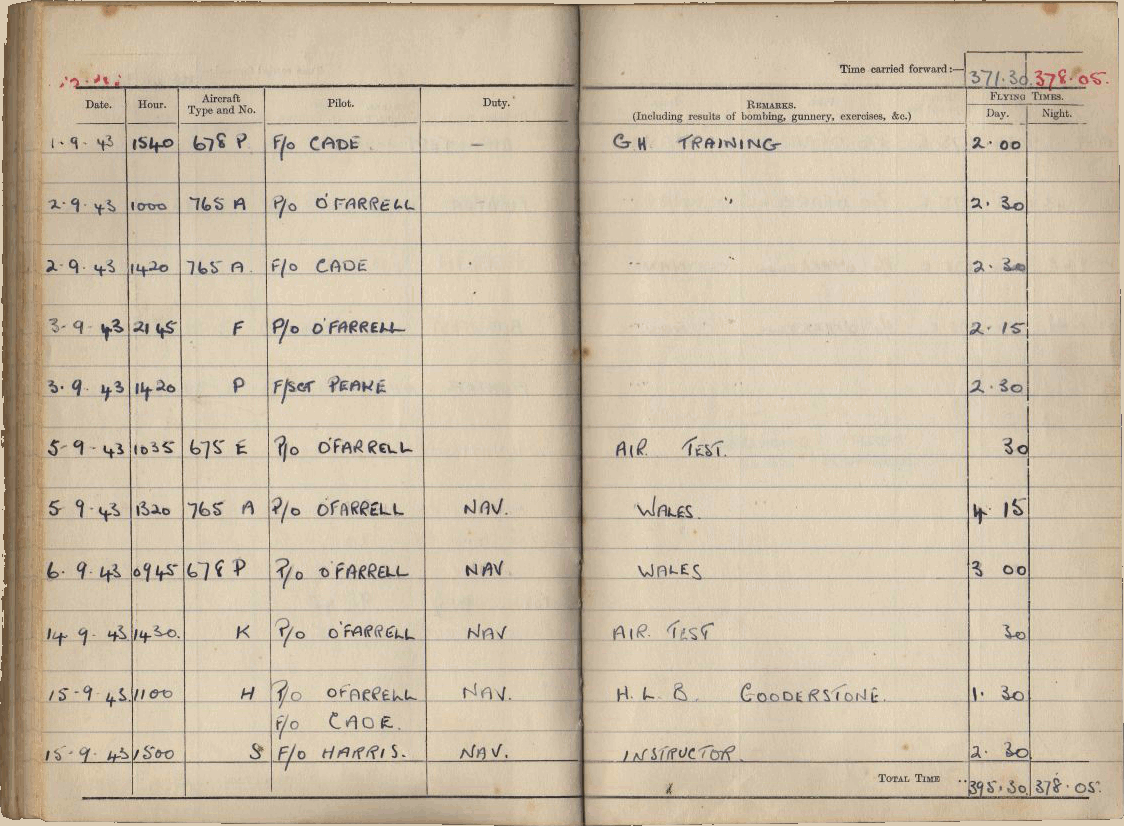 Time carried forward:— 371.30 378.05.
Date. Hour. Aircraft Type and No. Pilot. Duty. REMARKS. (Including results of bombing, gunnery, exercises, &c.) FLYING TIMES. Day. Night.
1.9.43 1540 678 P F/o CADE. — G.H. TRAINING 2.00
2.9.43 1000 765 A P/o O'FARRELL " 2.30
2.9.43 1420 765 A. F/o CADE " 2.30
3.9.43 2145 F P/o O'FARRELL 2.15
3.9.43 1420 P F/SGT PEAKE 2.30
5-9.43 1035 675 E P/o O'FARRELL AIR TEST. 30
5 9.43 1320 765 A P/o O'FARRELL NAV. WALES. 4 15
6.9.43 0945 678 P P/o O'FARRELL NAV. WALES 3 00
14 9.43 1430. K P/o O'FARRELL NAV AIR. TEST 30
15-9.43. 1100 H P/o OFARRELL NAV. H.L.B. GOODERSTONE. 1.30
F/o CADE.
15-9.43 1500 S F/o HARRIS. NAV. INSTRUCTOR. 2.30
TOTAL TIME 395.30 378.05.